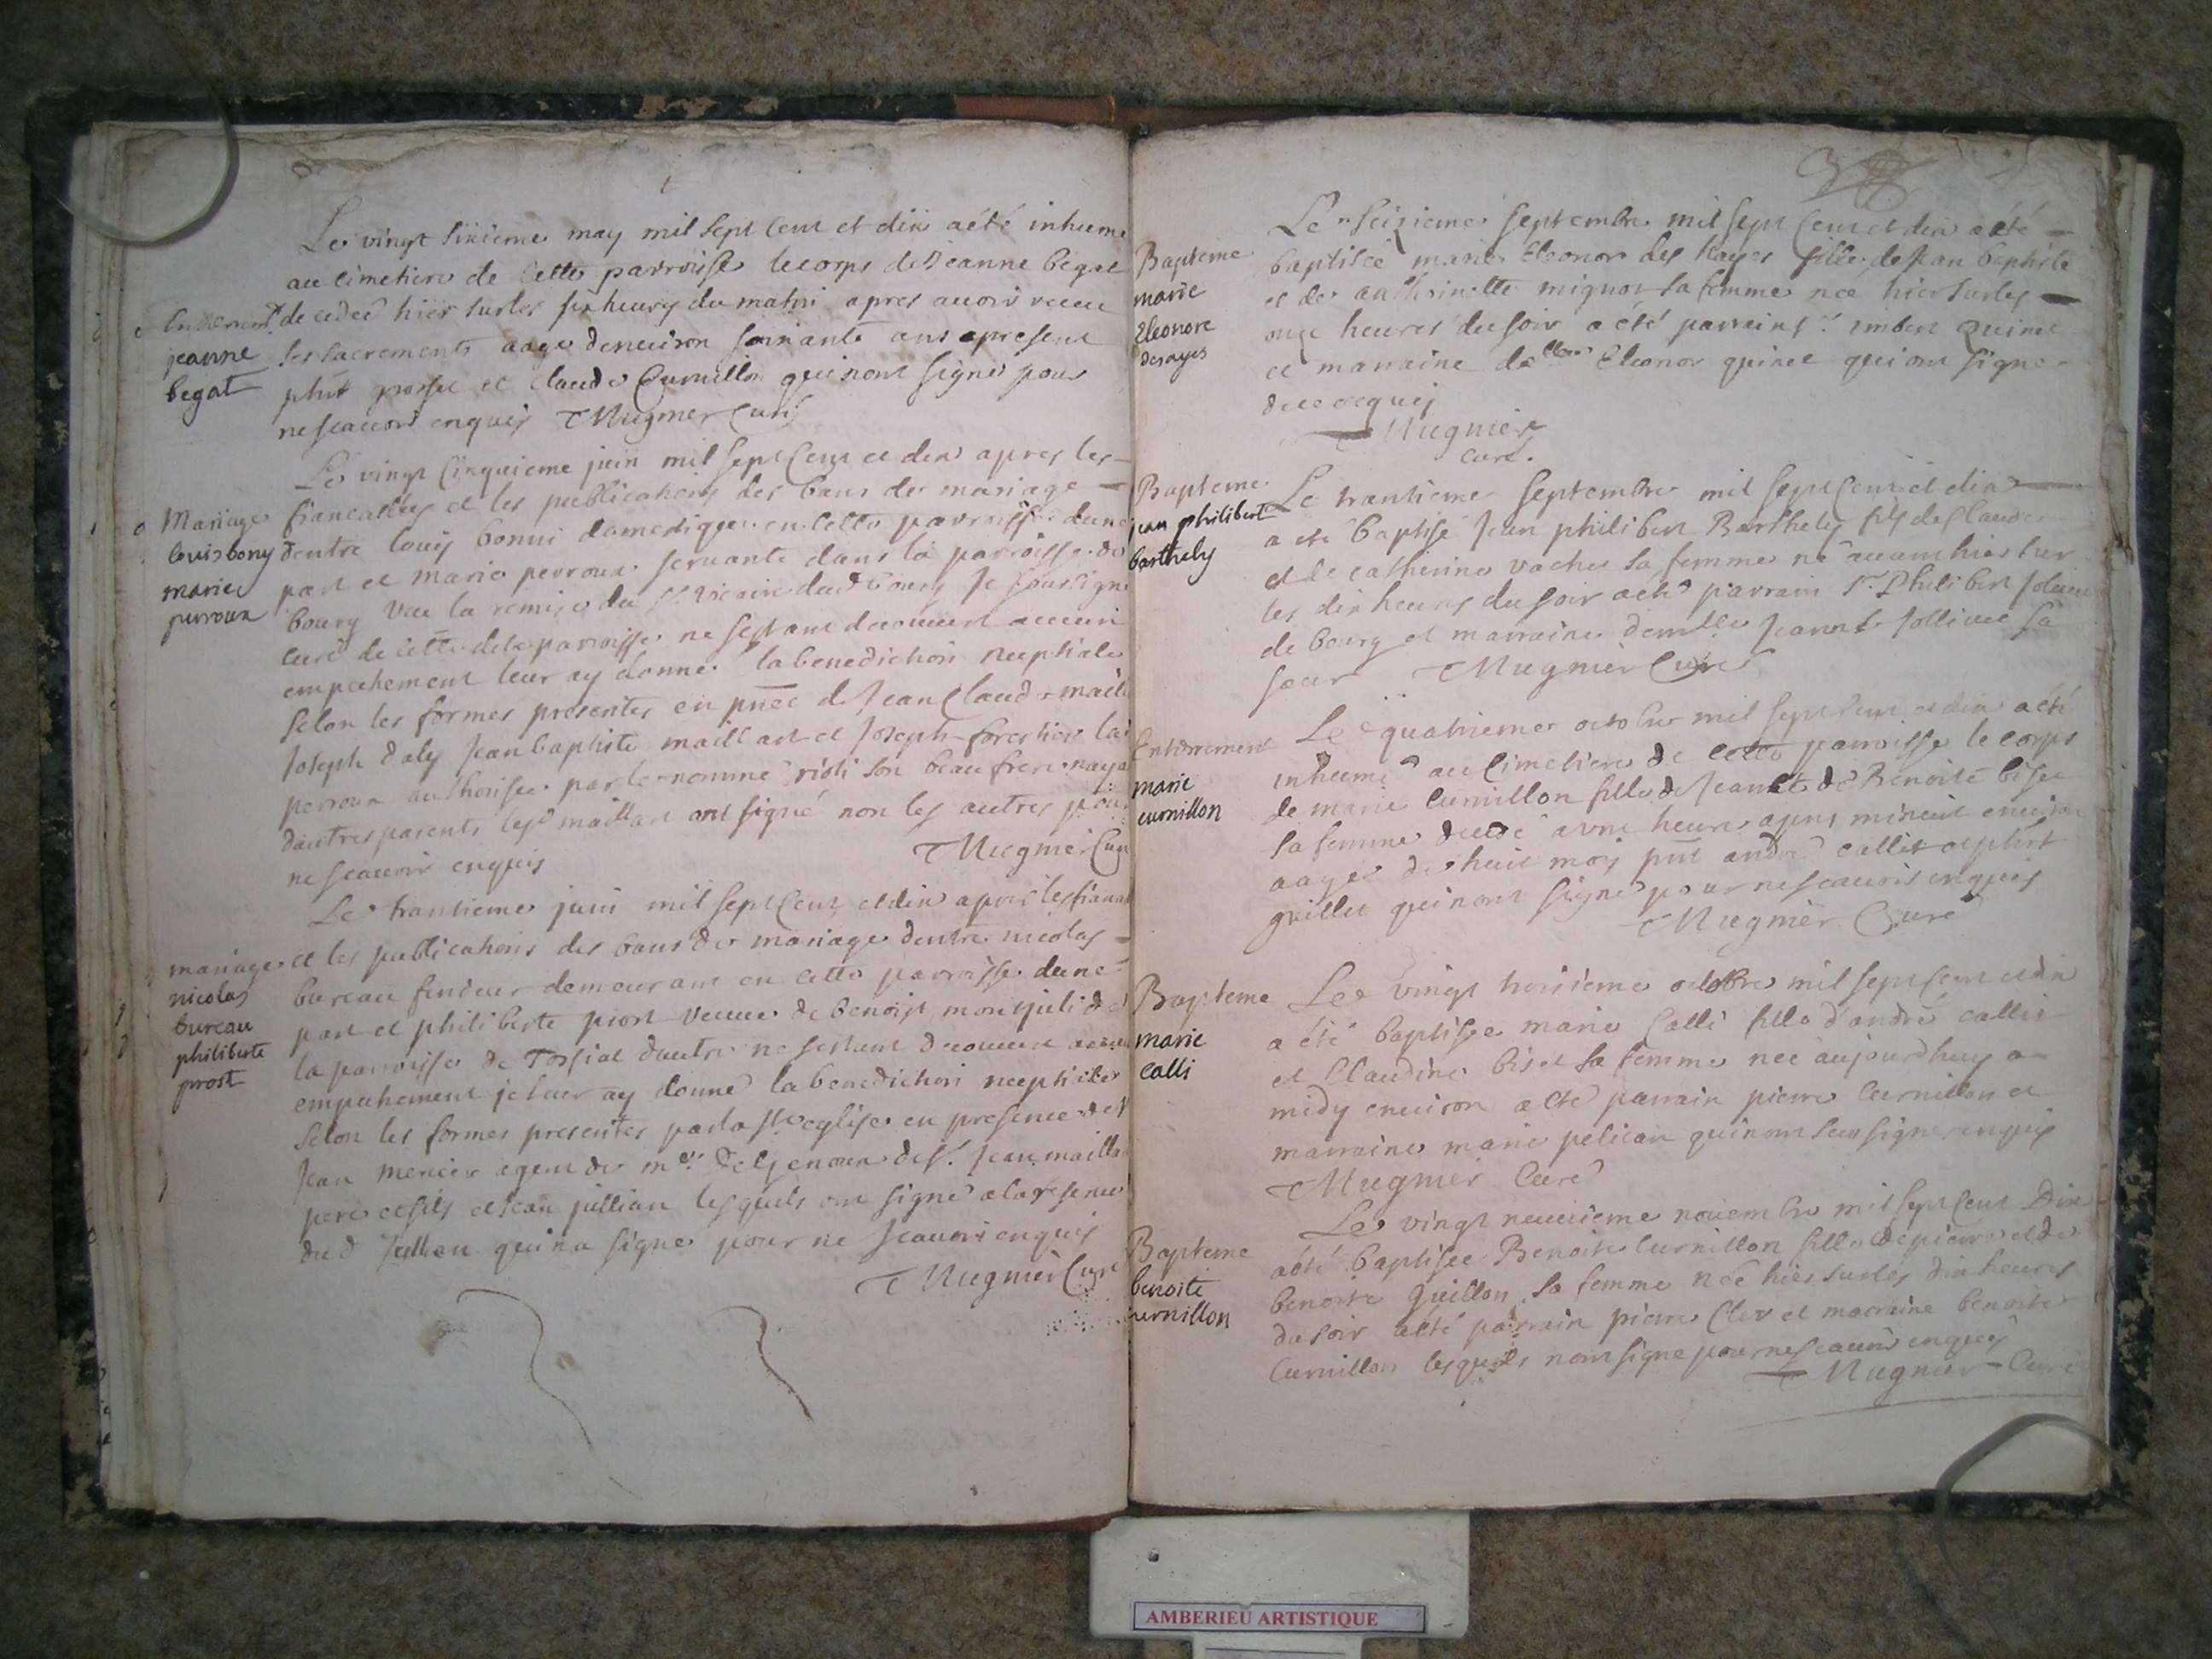 Le vingt sixieme may mil sept cent et dix a été inhumé
au cimetiere de cette parroisse le corps de Jeanne begat
decedeé hier sur les six heures du matin apres avoir receu
les sacrements aagé denviron soixante ans a present
phit et claude Curnillon qui nont signé pour
ne scavoir enquis Mugnier Curé
Enterrement
jeanne
begat
Le vingt cinquieme juin mil sept cent et dix apres les
fiancailles et les publications des bans de mariage
dentre louis bonni domestique en cette parroisse dune
part et marie perroux servante dans la parroisse de
bourg veu la remise du Sr vicaire dud bourg Je soussigné
curé de cette parroisse ne sestant decouvert aucun
empechement leur ay donné la benediction nuptiale
selon les formes presentes en pñce de Jean Claude
Joseph daly Jean baptiste maillart et Joseph forestier
perroux authorisee par le nommé son beau frere
dautres parents led maillart ont signé non les autres pour
ne scavoir enquis
Mugnier Curé
Mariage
louis bony
marie
perroux
Le trantieme juin mil sept cent et dix apres les
et les publications des bans de mariage dentre nicolas
bureau fendeur demeurant en cette parroisse dune
part et philiberte prost veuve de benoist de
la parroisse de Tossiat dautre ne sestant decouvert aucun
empechement je leur ay donné la benediction nuptiale
selon les formes presentes par la ste eglise en presence de
Jean mercier agent de mr de Sr Jean maillart
pere et fils et Jean jullian lesquels ont signé a la reserve
dud Jullien qui na signé pour ne scavoir enquis
Mugnier Curé
mariage
nicolas
bureau
philiberte
prost
Le seizieme septembre mil sept cent et dix a été
baptisée marie Eleonor des hayes fille de Jean baptiste
et de anthoinette mignot sa femme née hier sur les
onze heures du soir a été parrain Sr imbert quinet
et marraine delle Eleonor quinet qui ont signé
de ce requis
Mugnier
curé.
Bapteme
marie
Eleonore
desayes
Le trantieme septembre mil sept cent et dix
a été baptisé Jean philibert Barthely fils de Claude
et de catherine vacher sa femme né avant hier sur
les dix heures du soir a été parrain Sr Philibert
de bourg et marraine demlle Jeanne sa
soeur Mugnier Curé
Bapteme
jean philibert
barthely
Le quatrieme octobre mil sept cent et dix a été
inhumé au Cimetiere de cette parroisse le corps
de marie Curnillon fille de Jean et de Benoite biset
sa femme decedé a une heure apres minuit environ
aagée de huit mois pnt andré callit et phit
grillet qui nont signé pour ne scavoir enquis
Mugnier Curé
Enterrement
marie
curnillon
Le vingt troisieme octobre mil sept cent et dix
a été baptisée marie Calli fille d'andré callit
et Claudine biset sa femme née aujourdhuy a
midy environ a été parrain pierre Curnillon et
marraine marie pelican qui nont sceu signer enquis
Mugnier Curé
Bapteme
marie
Calli
Le vingt neuvieme novembre mil sept cent Dix
a été baptisée Benoite Curnillon fille de pierre et de
benoite Guillon sa femme née hier sur les dix heures
du soir a été parrain pierre Cler et marraine benoite
Curnillon lesquels nont signé pour ne scavoir enquis
Mugnier Curé
Bapteme
benoite
curnillon
AMBERIEU ARTISTIQUE